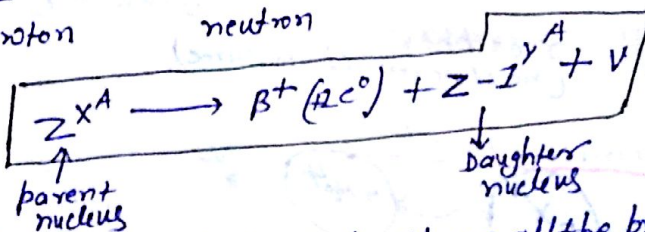 roton neutron
zXᴬ → β⁺ (+1e⁰) + z-1Yᴬ + ν
parent nucleus
Daughter nucleus